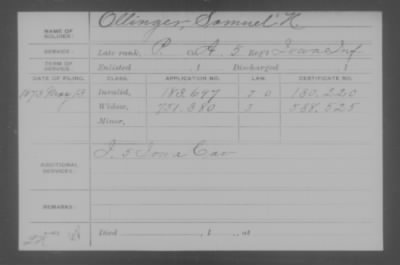 NAME OF SOLDIER: Ollinger, Samuel K
SERVICE: Late rank, P. Co. A. 5 Reg't Iowa Inf
TERM OF SERVICE: Enlisted , 1 Discharged , 1
DATE OF FILING. CLASS. APPLICATION NO. LAW. CERTIFICATE NO.
1873 May 13 Invalid, 183.697 130.220
Widow, 751.380 588.525
Minor,
ADDITIONAL SERVICES: I. 5 Iowa Cav
REMARKS:
Died , 1 , at